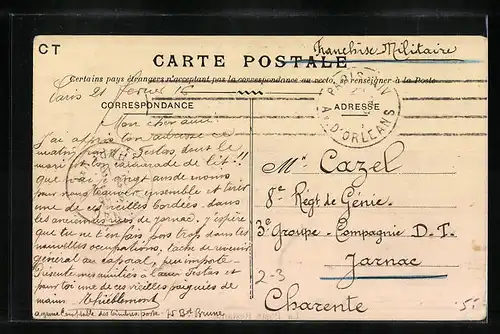 CT
Franchise Militaire
CARTE POSTALE
Certains pays étrangers n'acceptant pas la correspondance au recto, se renseigner à la Poste
Paris 21 Février 16
CORRESPONDANCE
ADRESSE
PARIS XIV
AV. D'ORLEANS
Mon cher ami
J'ai appris ton adresse ce
matin par Testas dont le
mari est ton camarade de lit!!
que n'ai-je vingt ans de moins
pour nous trouver ensemble et tirer
une de ces vieilles bordées dans
les anciennes rues de Jarnac. j'espère
que tu ne t'en fais pas trop dans tes
nouvelles occupations, tache de revenir
général ou caporal, peu importe
Présente mes amitiés à Testas et
pour toi une de ces vieilles poignées de
mains
Mr Cazel
8e Régt de Génie
3e Groupe - Compagnie D.T.
Jarnac
Charente
2-3
55